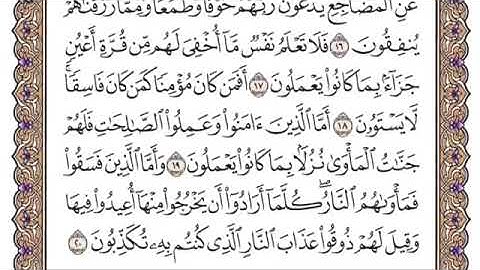 عَنِ ٱلْمَضَاجِعِ يَدْعُونَ رَبَّهُمْ خَوْفًا وَطَمَعًا وَمِمَّا رَزَقْنَٰهُمْ
يُنفِقُونَ ١٦ فَلَا تَعْلَمُ نَفْسٌ مَّآ أُخْفِيَ لَهُم مِّن قُرَّةِ أَعْيُنٍ
جَزَآءًۢ بِمَا كَانُوا۟ يَعْمَلُونَ ١٧ أَفَمَن كَانَ مُؤْمِنًا كَمَن كَانَ فَاسِقًا ۚ
لَّا يَسْتَوُۥنَ ١٨ أَمَّا ٱلَّذِينَ ءَامَنُوا۟ وَعَمِلُوا۟ ٱلصَّٰلِحَٰتِ فَلَهُمْ
جَنَّٰتُ ٱلْمَأْوَىٰ نُزُلًۢا بِمَا كَانُوا۟ يَعْمَلُونَ ١٩ وَأَمَّا ٱلَّذِينَ فَسَقُوا۟
فَمَأْوَىٰهُمُ ٱلنَّارُ ۖ كُلَّمَآ أَرَادُوٓا۟ أَن يَخْرُجُوا۟ مِنْهَآ أُعِيدُوا۟ فِيهَا
وَقِيلَ لَهُمْ ذُوقُوا۟ عَذَابَ ٱلنَّارِ ٱلَّذِي كُنتُم بِهِۦ تُكَذِّبُونَ ٢٠